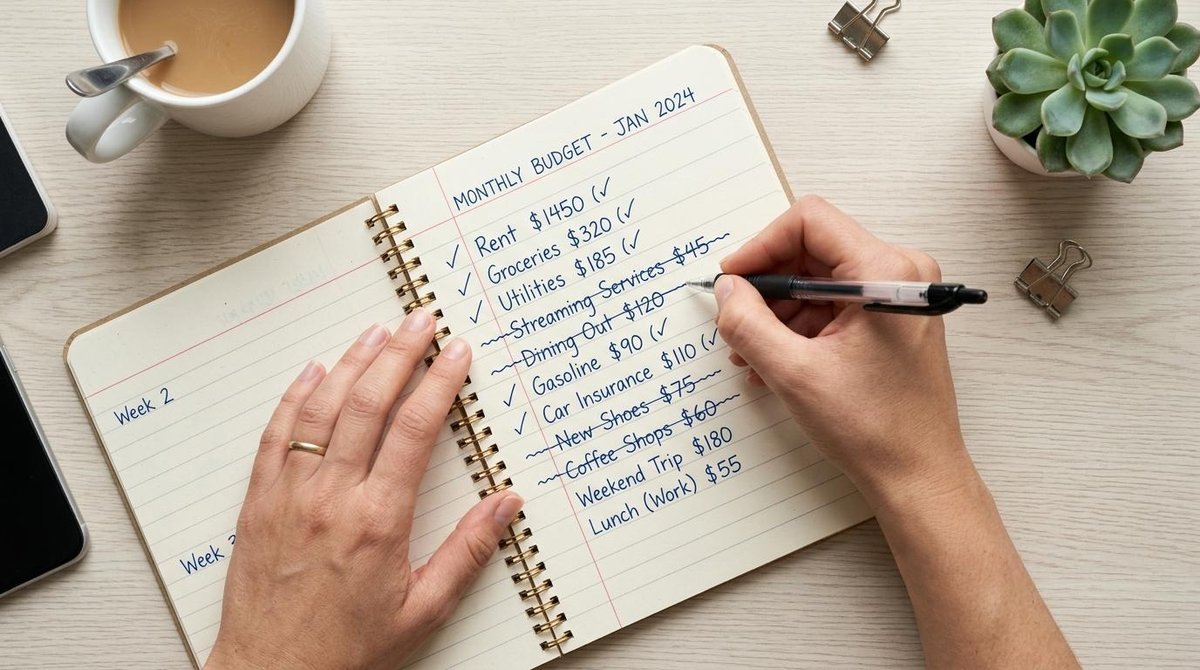 Week 2
Week
MONTHLY BUDGET - JAN 2024
✓ Rent $1450 (✓
✓ Groceries $320 (✓
✓ Utilities $185 (✓
Streaming Services $45
Dining Out $120
✓ Gasoline $90 (✓
✓ Car Insurance $110 (✓
New Shoes $75
Coffee Shops $60
Weekend Trip $180
Lunch (Work) $55